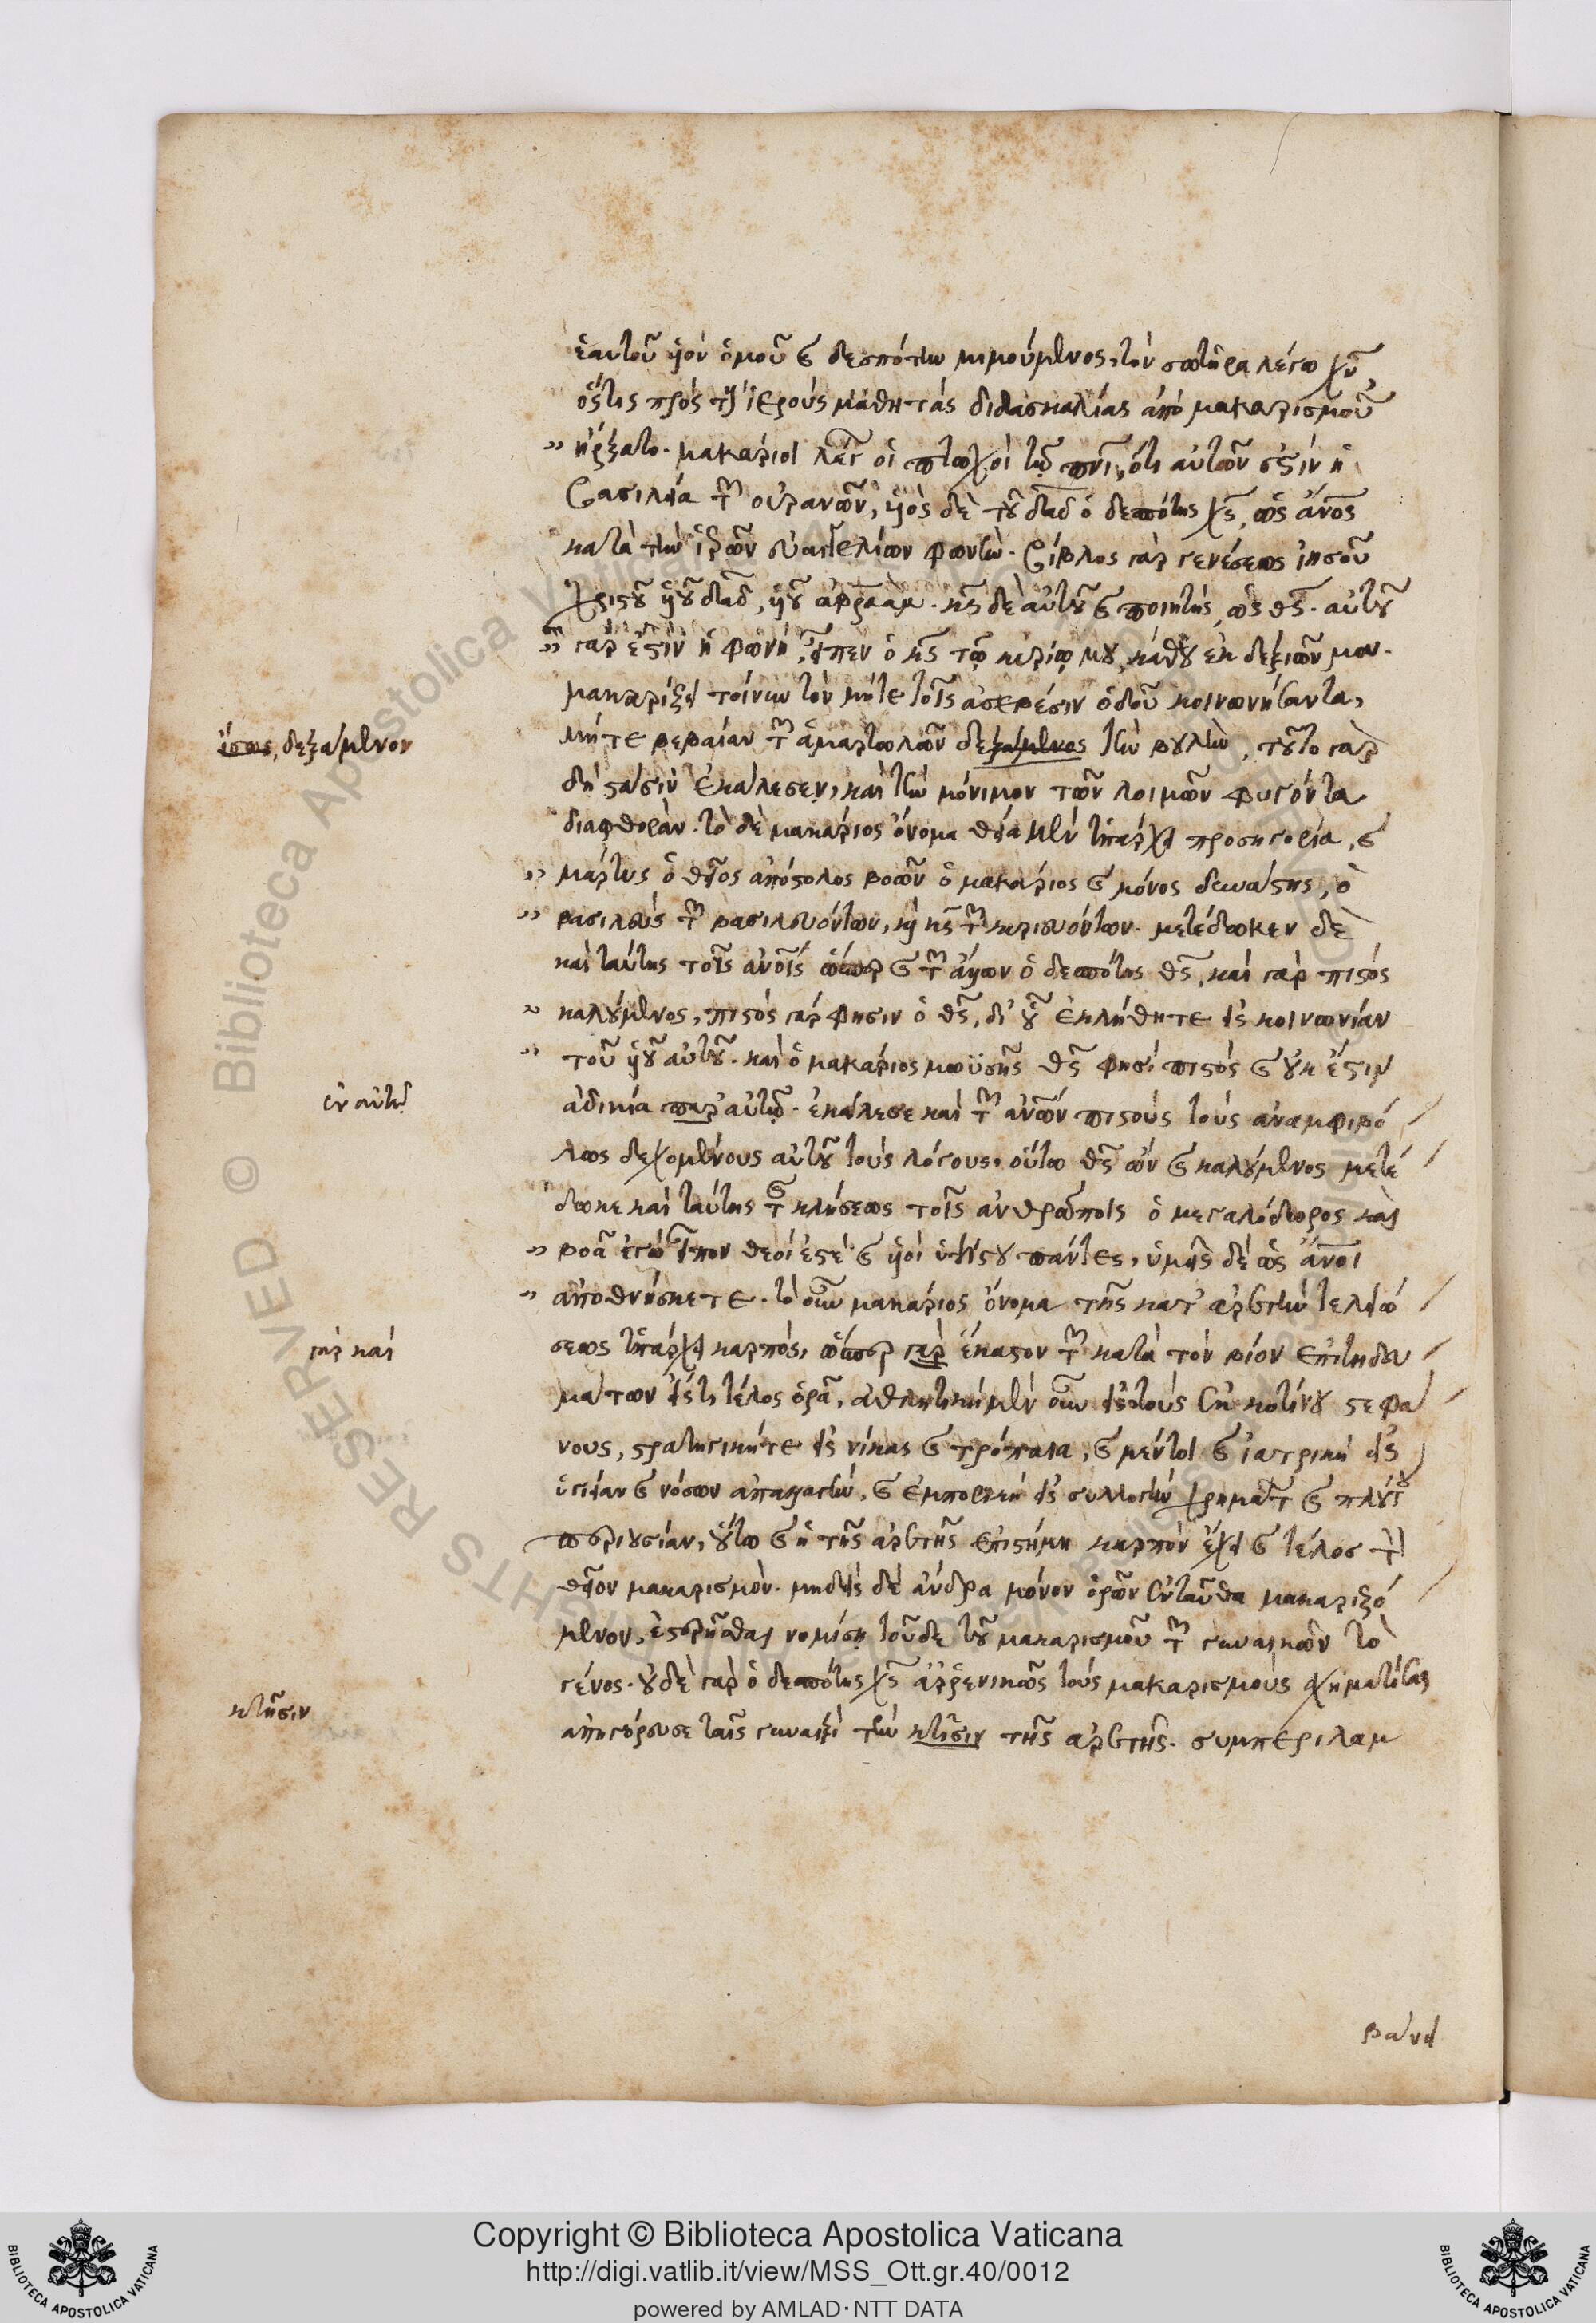 ἑαυτοῦ υἱὸν ὁμοῦ καὶ δεσπότην μιμούμενος, τὸν σωτῆρα λέγω χν
ὅστις πρὸς τοὺς ἱεροὺς μαθητὰς διδασκαλίας ἀπὸ μακαρισμοῦ
" ἤρξατο. μακάριοι λέγ οἱ πτωχοὶ τῷ πνι, ὅτι αὐτῶν ἐστὶν ἡ
βασιλεία τῶν οὐρανῶν, υἱὸς δὲ τοῦ δαδ ὁ δεσπότης χς, ὡς ἄνος
κατὰ τὴν ἱερῶν εὐαγγελίων φωνήν. βίβλος γὰρ γενέσεως ἰησοῦ
χριστοῦ υἱοῦ δαδ, υἱοῦ ἀβραάμ. κς δὲ αὐτοῦ καὶ ποιητής, ὡς θς. αὐτοῦ
" γάρ ἐστιν ἡ φωνή, εἶπεν ὁ κς τῷ κυρίῳ μου κάθου ἐκ δεξιῶν μου.
μακαρίζει τοίνυν τὸν μήτε τοῖς ἀσεβέσιν ὁδοῦ κοινωνήσαντα,
ἴσως, δεξάμενον
μήτε βεβαίαν τῶν ἁμαρτωλῶν δεξάμενος τὴν βουλήν, τοῦτο γὰρ
δὴ στάσιν ἐκάλεσεν, καὶ τὴν μόνιμον τῶν λοιμῶν φυγόντα
διαφθοράν. τὸ δὲ μακάριος ὄνομα θεία μὲν ὑπάρχει προσηγορία, καὶ
" μάρτυς ὁ θεῖος ἀπόστολος βοῶν ὁ μακάριος καὶ μόνος δυνάστης, ὁ
" βασιλεὺς τῶν βασιλευόντων, καὶ κς τῶν κυριευόντων. μετέδωκεν δὲ
καὶ ταύτης τοῖς ἀνοις ὥσπερ καὶ τῶν ἄλλων ὁ δεσπότης θς, καὶ γὰρ πιστὸς
" καλούμενος, πιστὸς γάρ φησιν ὁ θς, δι' οὗ ἐκλήθητε εἰς κοινωνίαν
" τοῦ υἱοῦ αὐτοῦ. καὶ ὁ μακάριος μωϋσῆς θς φησὶ πιστὸς καὶ οὐκ ἔστιν
ἐν αὐτῷ
ἀδικία παρ' αὐτῷ. ἐκάλεσε καὶ τῶν ἀνων πιστοὺς τοὺς ἀναμφιβό
λως δεχομένους αὐτοῦ τοὺς λόγους. οὕτω θς ὢν καὶ καλούμενος μετέ
δωκε καὶ ταύτης τῆς κλήσεως τοῖς ἀνθρώποις ὁ μεγαλόδωρος καὶ
" βοᾷ ἐγὼ εἶπον θεοί ἐστε καὶ υἱοὶ ὑψίστου πάντες, ὑμεῖς δὲ ὡς ἄνοι
" ἀποθνήσκετε. τὸ οὖν μακάριος ὄνομα τῆς κατ' ἀρετὴν τελειώ
γὰρ καὶ
σεως ὑπάρχει καρπός, ὥσπερ γὰρ ἕκαστον τῶν κατὰ τὸν βίον ἐπιτηδευ
μάτων εἴς τι τέλος ὁρᾷ, ἀθλητικὴ μὲν οὖν εἰς τοὺς ἐκ κοτίνου στεφά
νους, στρατηγική τε εἰς νίκας καὶ τρόπαια, καὶ μέντοι καὶ ἰατρικὴ εἰς
ὑγείαν καὶ νόσων ἀπαλλαγήν, καὶ ἐμπορικὴ εἰς συλλογὴν χρημάτων καὶ πλούτου
περιουσίαν, οὕτω καὶ ἡ τῆς ἀρετῆς ἐπιστήμη καρπὸν ἔχει καὶ τέλος τὸν
θεῖον μακαρισμόν. μηδεὶς δὲ ἄνδρα μόνον ὁρῶν ἐνταῦθα μακαριζό
μενον, ἐστερῆσθαι νομίσῃ τοῦδε τοῦ μακαρισμοῦ τῶν γυναικῶν τὸ
γένος. οὐδὲ γὰρ ὁ δεσπότης χς ἀρρενικῶς τοὺς μακαρισμοὺς σχηματίσας
κτῆσιν
ἀπηγόρευσε ταῖς γυναιξὶ τὴν κτίσιν τῆς ἀρετῆς. συμπεριλαμ
βάνει
Copyright © Biblioteca Apostolica Vaticana
http://digi.vatlib.it/view/MSS_Ott.gr.40/0012
powered by AMLAD·NTT DATA